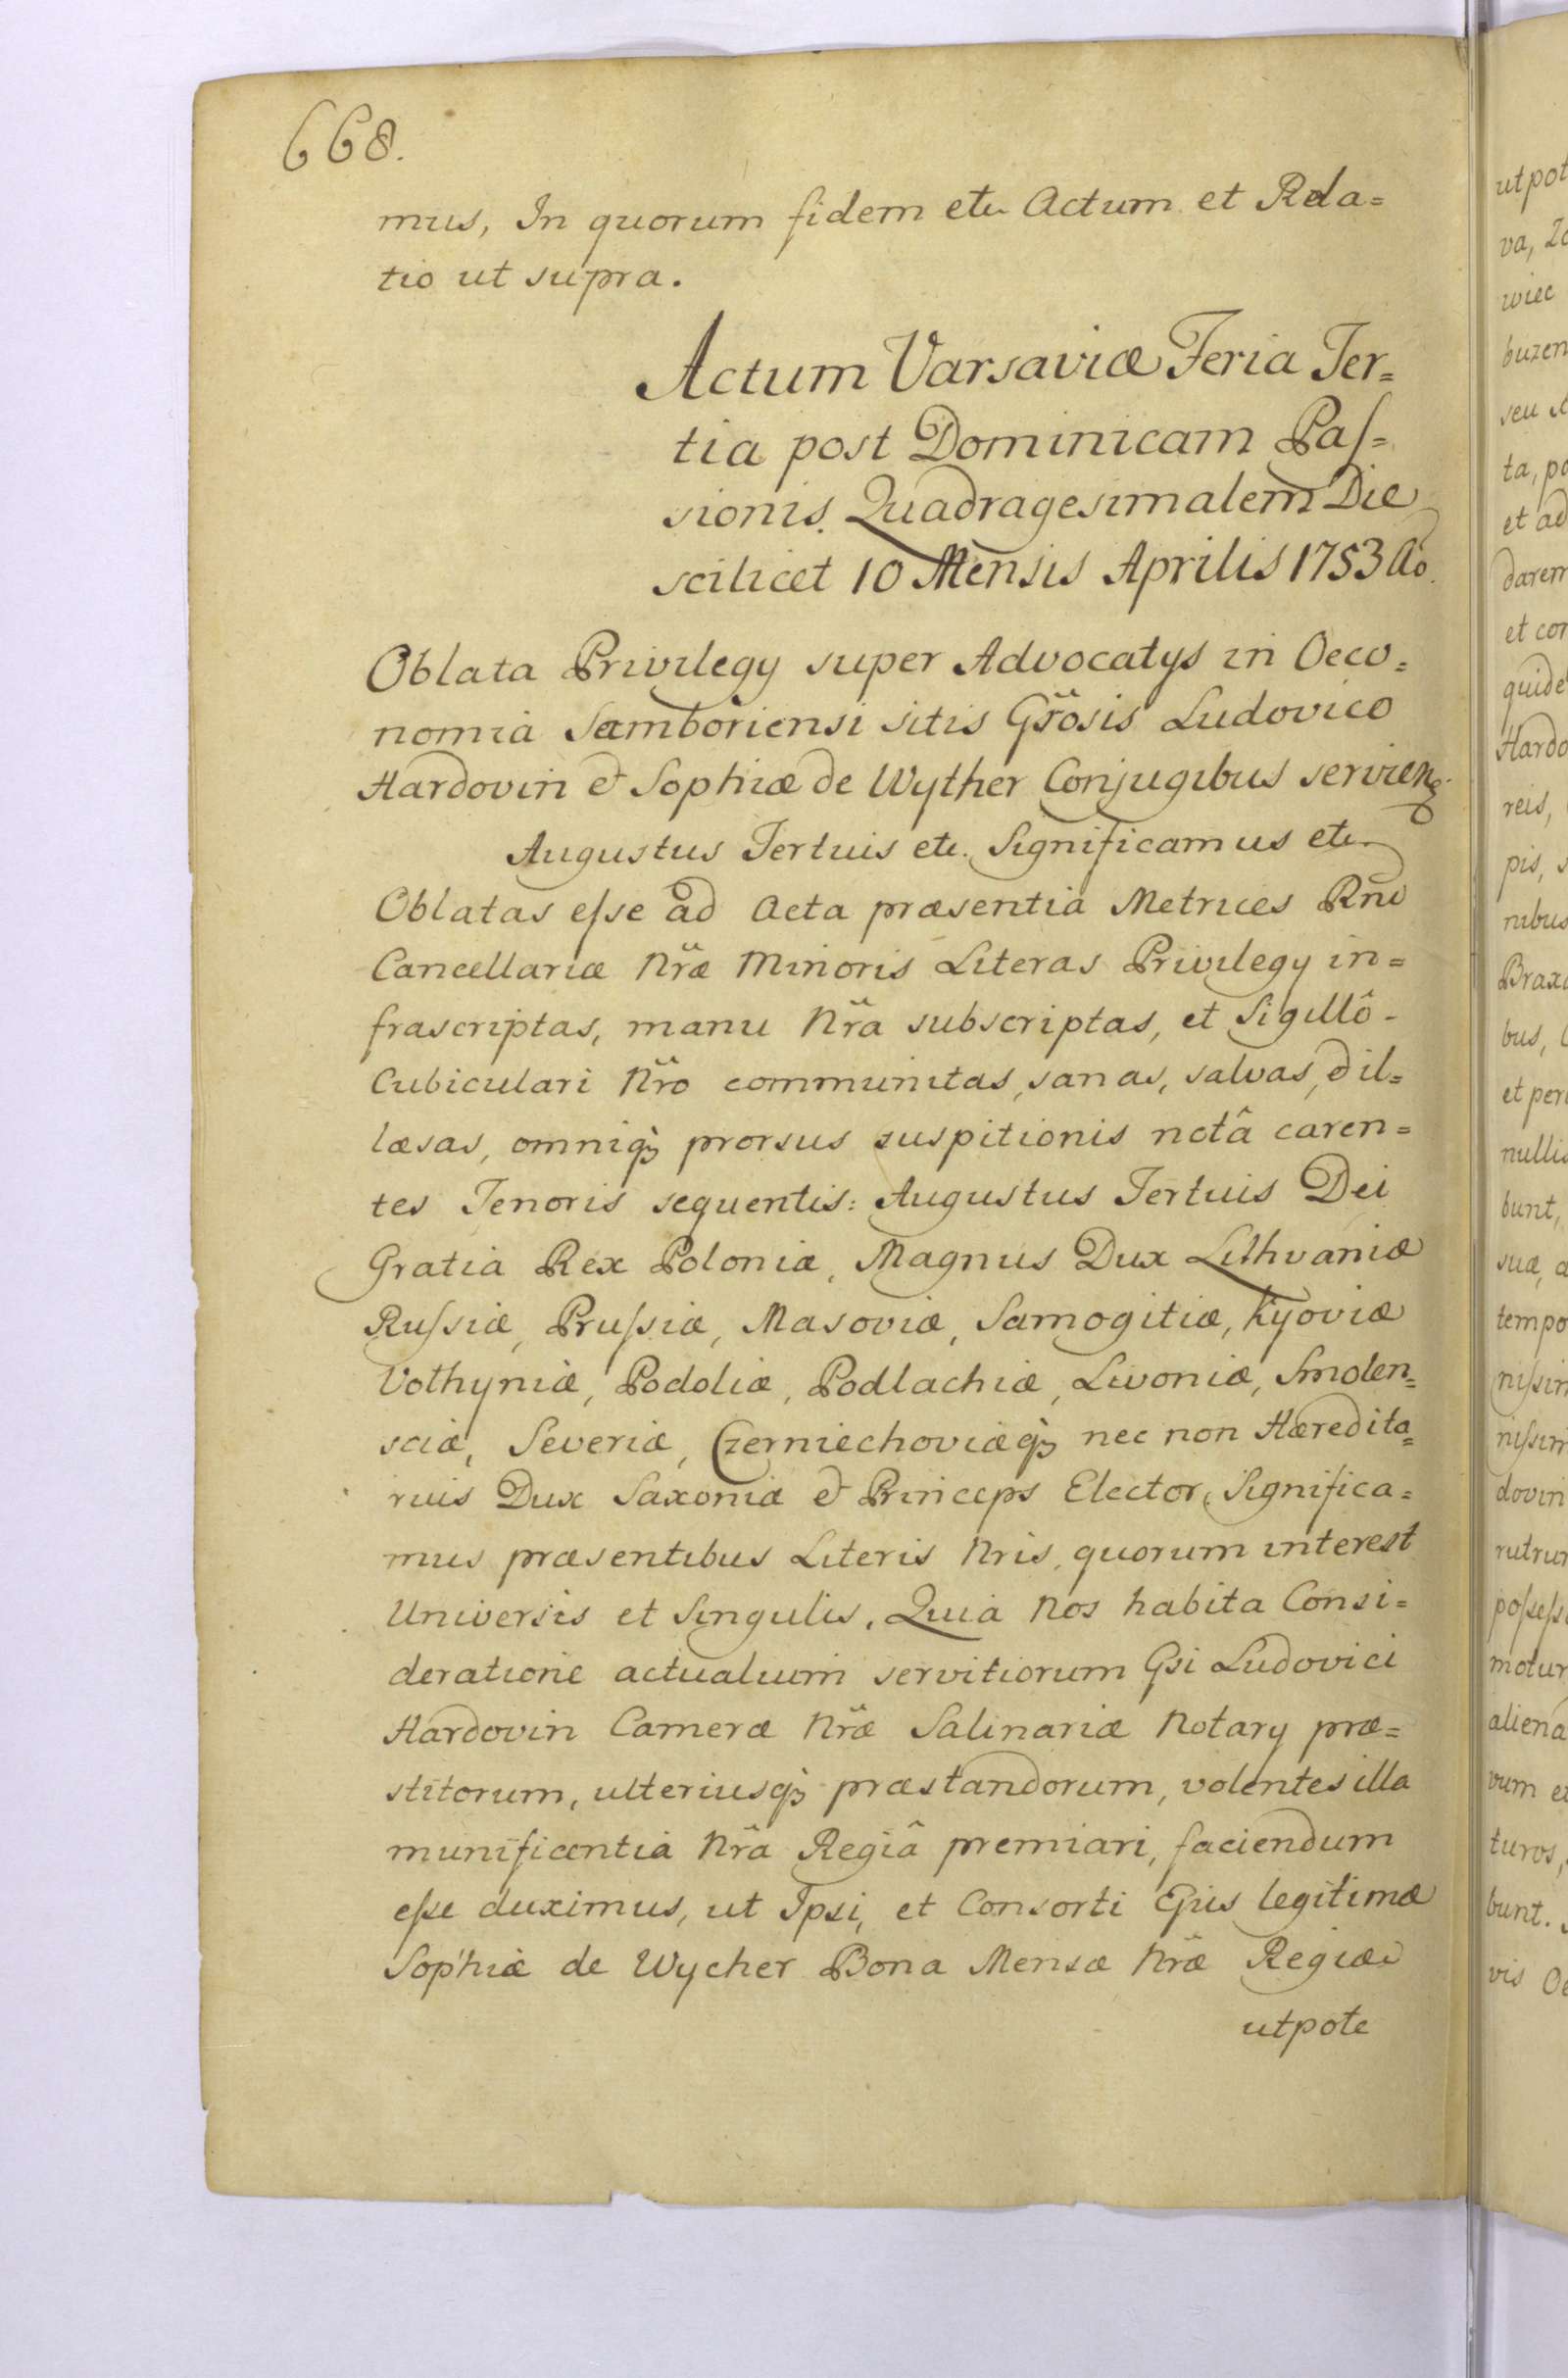 668.
mus, In quorum fidem etc Actum et Rela=
tio ut supra.
Actum Varsaviæ Feria Ter=
tia post Dominicam Paſ=
sionis Quadragesimalem Die
scilicet 10 Mensis Aprilis 1753 Ao.
Oblata Privilegy super Advocatys in Oeco=
nomia Samboriensi sitis Gr̃osis Ludovico
Hardovin & Sophiæ de Wyther Conjugibus servieñ.
Augustus Tertius etc. Significamus etc
Oblatas eſse ad Acta præsentia Metrices Rni
Cancellariæ Nr̃æ Minoris Literas Privilegy in=
frascriptas, manu Nr̃a subscriptas, et Sigillô
Cubiculari Nr̃o communitas, sanas, salvas, & il=
læsas, omniq; prorsus suspitionis notâ caren=
tes Tenoris sequentis: Augustus Tertius Dei
Gratia Rex Poloniæ, Magnus Dux Lithvaniæ
Ruſsiæ, Pruſsiæ, Masoviæ, Samogitiæ, Kyoviæ
Volhyniæ, Podoliæ, Podlachiæ, Livoniæ, Smolen=
sciæ, Severiæ, Czerniechoviæq; nec non Hæredita=
rius Dux Saxoniæ & Princeps Elector, Significa=
mus præsentibus Literis Nris, quorum interest
Universis et Singulis, Quia Nos habita Consi=
deratione actualium servitiorum Gsi Ludovici
Hardovin Cameræ Nr̃æ Salinariæ Notary præ=
stitorum, ulteriusq; præstandorum, volentes illa
munificentia Nr̃a Regiâ premiari, faciendum
eſse duximus, ut Ipsi, et Consorti Ejus legitimæ
Sophiæ de Wycher Bona Mensæ Nr̃æ Regiæ
utpote
utpot
va, Zo
wiec
buzen
seu A
ta, po
et ad
darem
et con
quide
Hardo
reis,
pis, s
nibus
Braxa
bus,
et per
nullis
bunt,
suæ, a
tempo
niſsim
niſsim
dovin
rutrum
poſseſsi
motur
aliena
vum et
turos,
bunt.
vis Oe